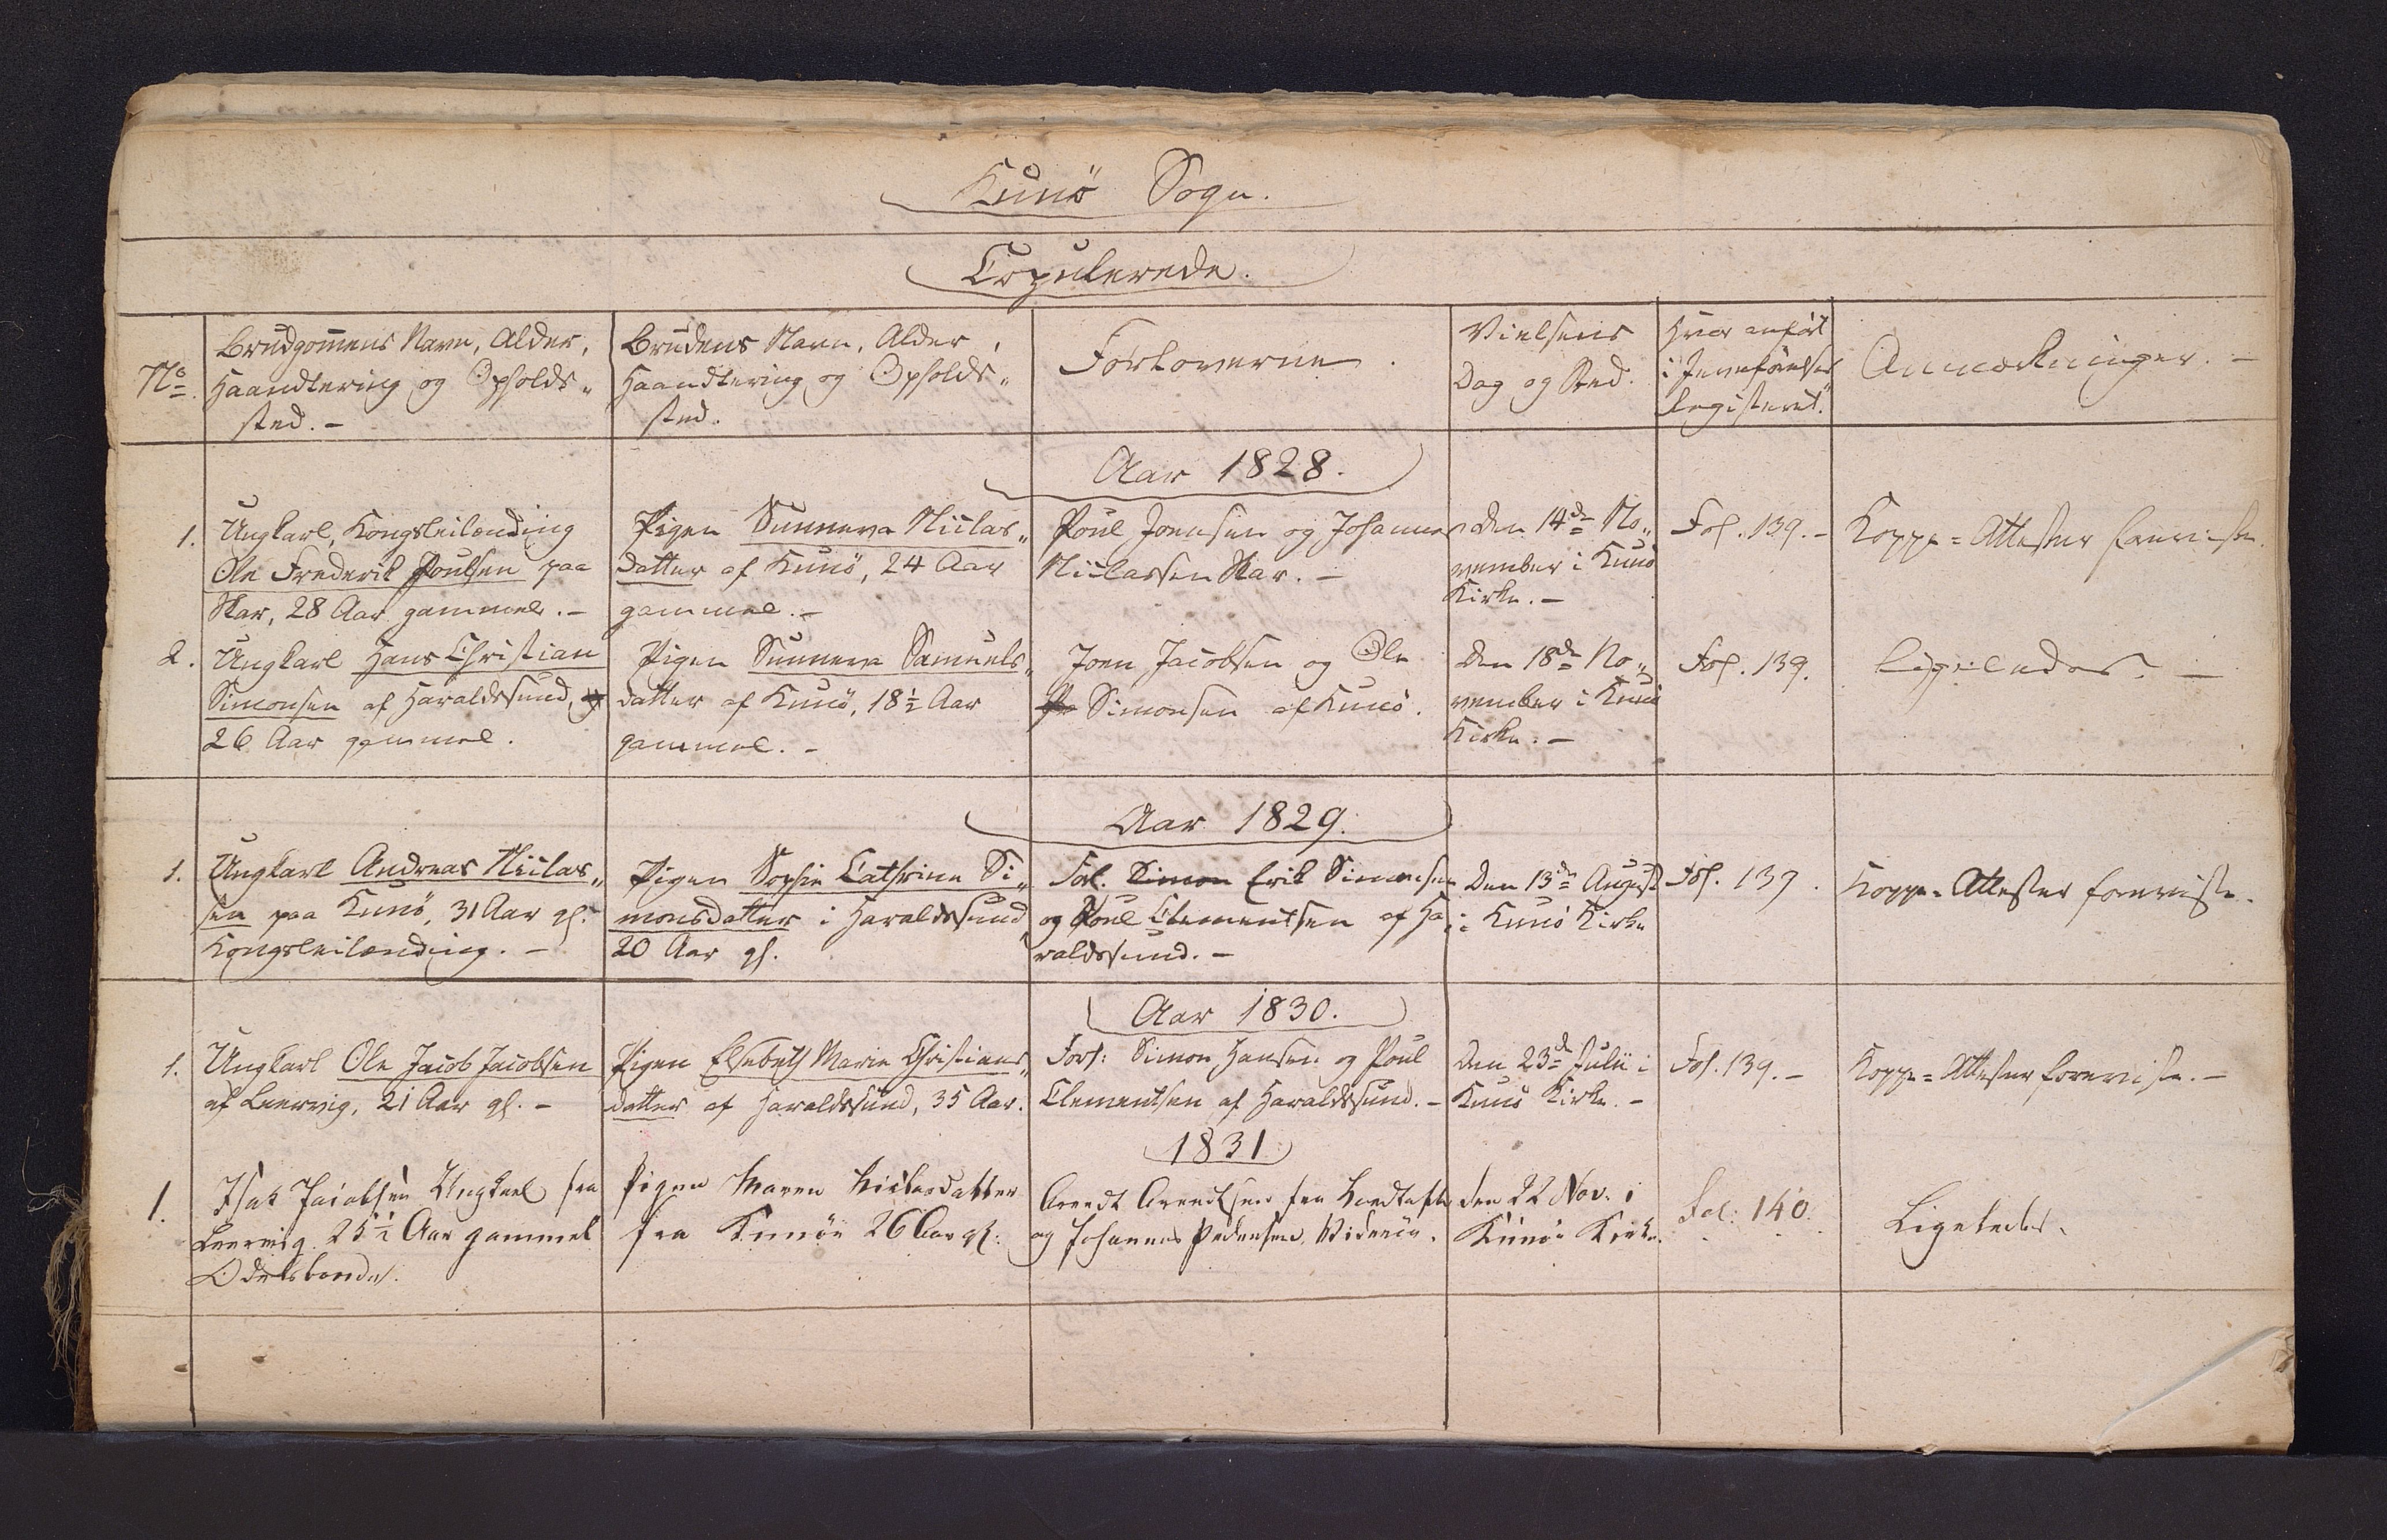 Kunö Sogn.
Copulerede.
No
Brudgomens Navn, Alder,
Haandtering og Opholds„
sted. –
Brudens Navn, Alder,
Haandtering og Opholds„
sted.
Forloverne.
Vielsens
Dag og Sted.
Hvor anfört
i Jevnförelses
Registeret.
Anmærkninger. –
Aar 1828.
1.
Ungkarl, Kongsleilænding
Ole Frederik Poulsen paa
Skar, 28 Aar gammel. –
Pigen Sunneva Niclas„
datter af Kunö, 24 Aar
gammel. –
Poul Joensen og Johannes
Niclassen Skar. –
Den 14de No„
vember i Kunö
Kirke. –
Fol. 139. –
Koppe=Attester foreviste.
2.
Ungkarl Hans Christian
Simonsen af Haraldssund,
26 Aar gammel.
Pigen Sunneva Samuels„
datter af Kunö, 18½ Aar
gammel. –
Joen Jacobsen og Ole
Simonsen af Kunö.
Den 18de No„
vember i Kunö
Kirke. –
Fol. 139.
Ligeledes. –
Aar 1829.
1.
Ungkarl Andreas Niclas„
sen paa Kunö, 31 Aar gl.
Kongsleilænding. –
Pigen Sophie Cathrine Si„
monsdatter i Haraldssund
20 Aar gl.
Forl. Simon Erik Simonsen
og Poul Clementsen af Ha„
raldssund. –
Den 13de August
i Kunö Kirke
Fol. 139.
Koppe=Attester foreviste.
Aar 1830.
1.
Ungkarl Ole Jacob Jacobsen
af Leervig, 21 Aar gl. –
Pigen Elsebeth Marie Christians„
datter af Haraldssund, 35 Aar.
Forl: Simon Hansen og Poul
Clementsen af Haraldssund. –
Den 23de Julii i
Kunö Kirke. –
Fol. 139. –
Koppe=Attester foreviste. –
1831
1.
Isak Jacobsen Ungkarl fra
Leervig 25½ Aar gammel
Odelsbonde.
Pigen Maren Niclasdatter
fra Kunöe 26 Aar gl:
Arendt Arendtsen fra
og Johannes Pedersen Videröe.
den 22 Nov. i
Kunöe Kirke.
Fol: 140.
Ligeledes.